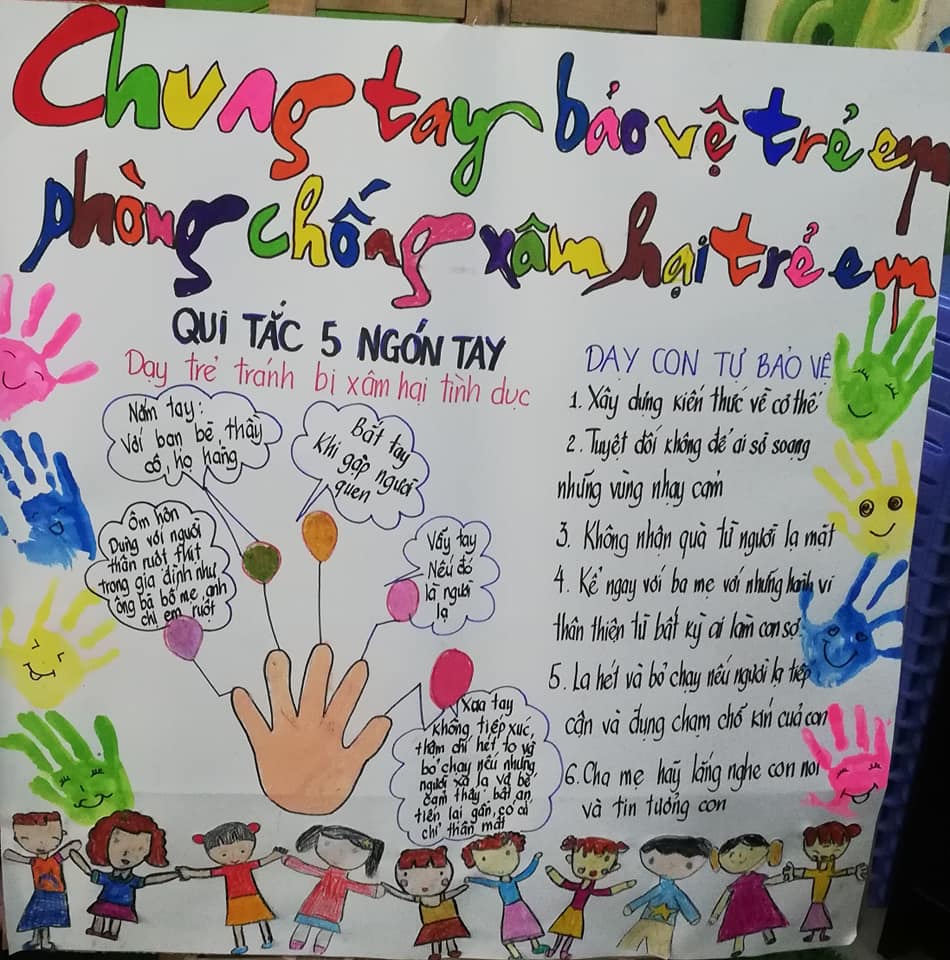 Chung tay bảo vệ trẻ em
phòng chống xâm hại trẻ em
QUI TẮC 5 NGÓN TAY
Dạy trẻ tránh bị xâm hại tình dục
Nắm tay:
Với bạn bè, thầy
cô, họ hàng
Bắt tay
Khi gặp người
quen
Ôm hôn
Dùng với người
thân ruột thịt
trong gia đình như
ông bà bố mẹ, anh
chị em ruột
Vẫy tay
Nếu đó
là người
lạ
Xua tay
không tiếp xúc,
thậm chí hét to và
bỏ chạy nếu những
người xa lạ và bé
cảm thấy bất an,
tiến lại gần, có cử
chỉ thân mật
DẠY CON TỰ BẢO VỆ
1. Xây dựng kiến thức về cơ thể
2. Tuyệt đối không để ai sờ soạng
những vùng nhạy cảm
3. Không nhận quà từ người lạ mặt
4. Kể ngay với ba mẹ với những hành vi
thân thiện từ bất kỳ ai làm con sợ
5. La hét và bỏ chạy nếu người lạ tiếp
cận và đụng chạm chỗ kín của con
6. Cha mẹ hãy lắng nghe con nói
và tin tưởng con